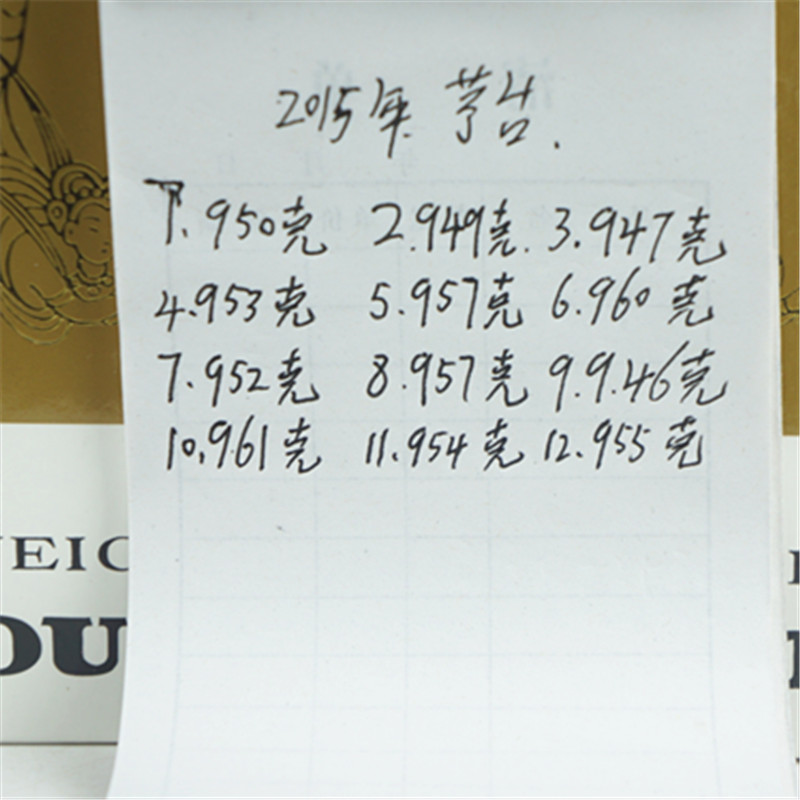 2015年 茅台.
1.950克 2.949克. 3.947克
4.953克 5.957克 6.960克
7.952克 8.957克 9.9.46克
10.961克 11.954克 12.955克
EIC
OU